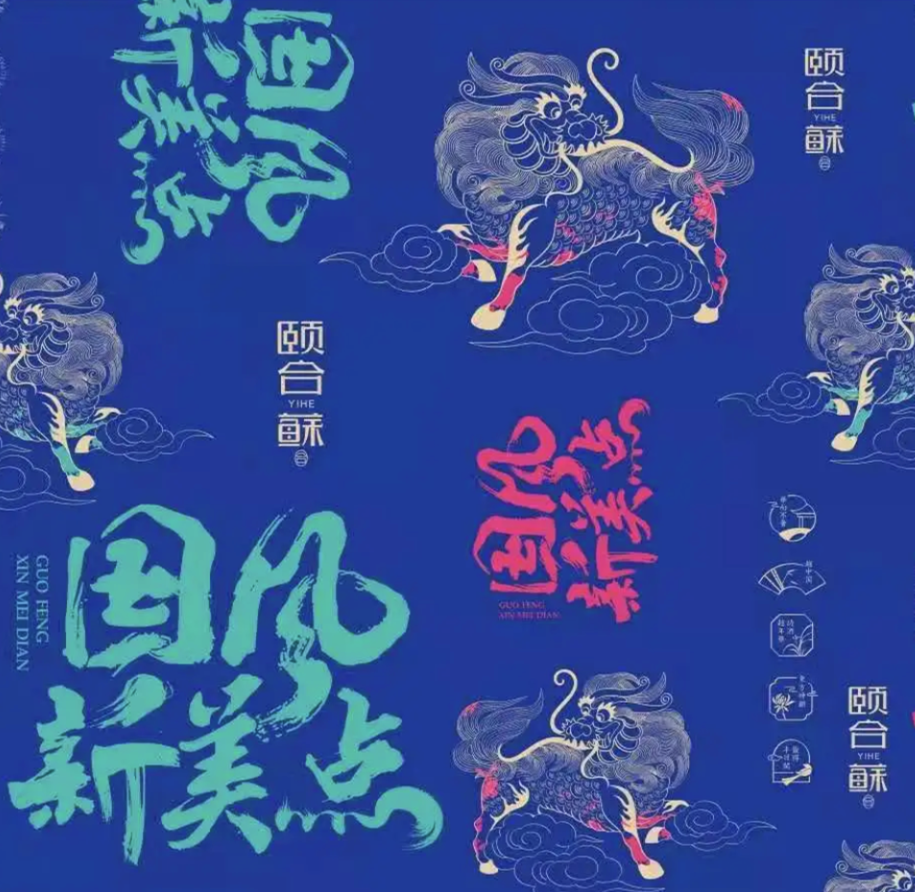 国风
新美点
颐
合
YIHE
蘇
颐
合
YIHE
蘇
国风
新美点
GUO FENG
XIN MEI DIAN
国风
新美点
GUO FENG
XIN MEI DIAN
超中国
颐
合
YIHE
蘇